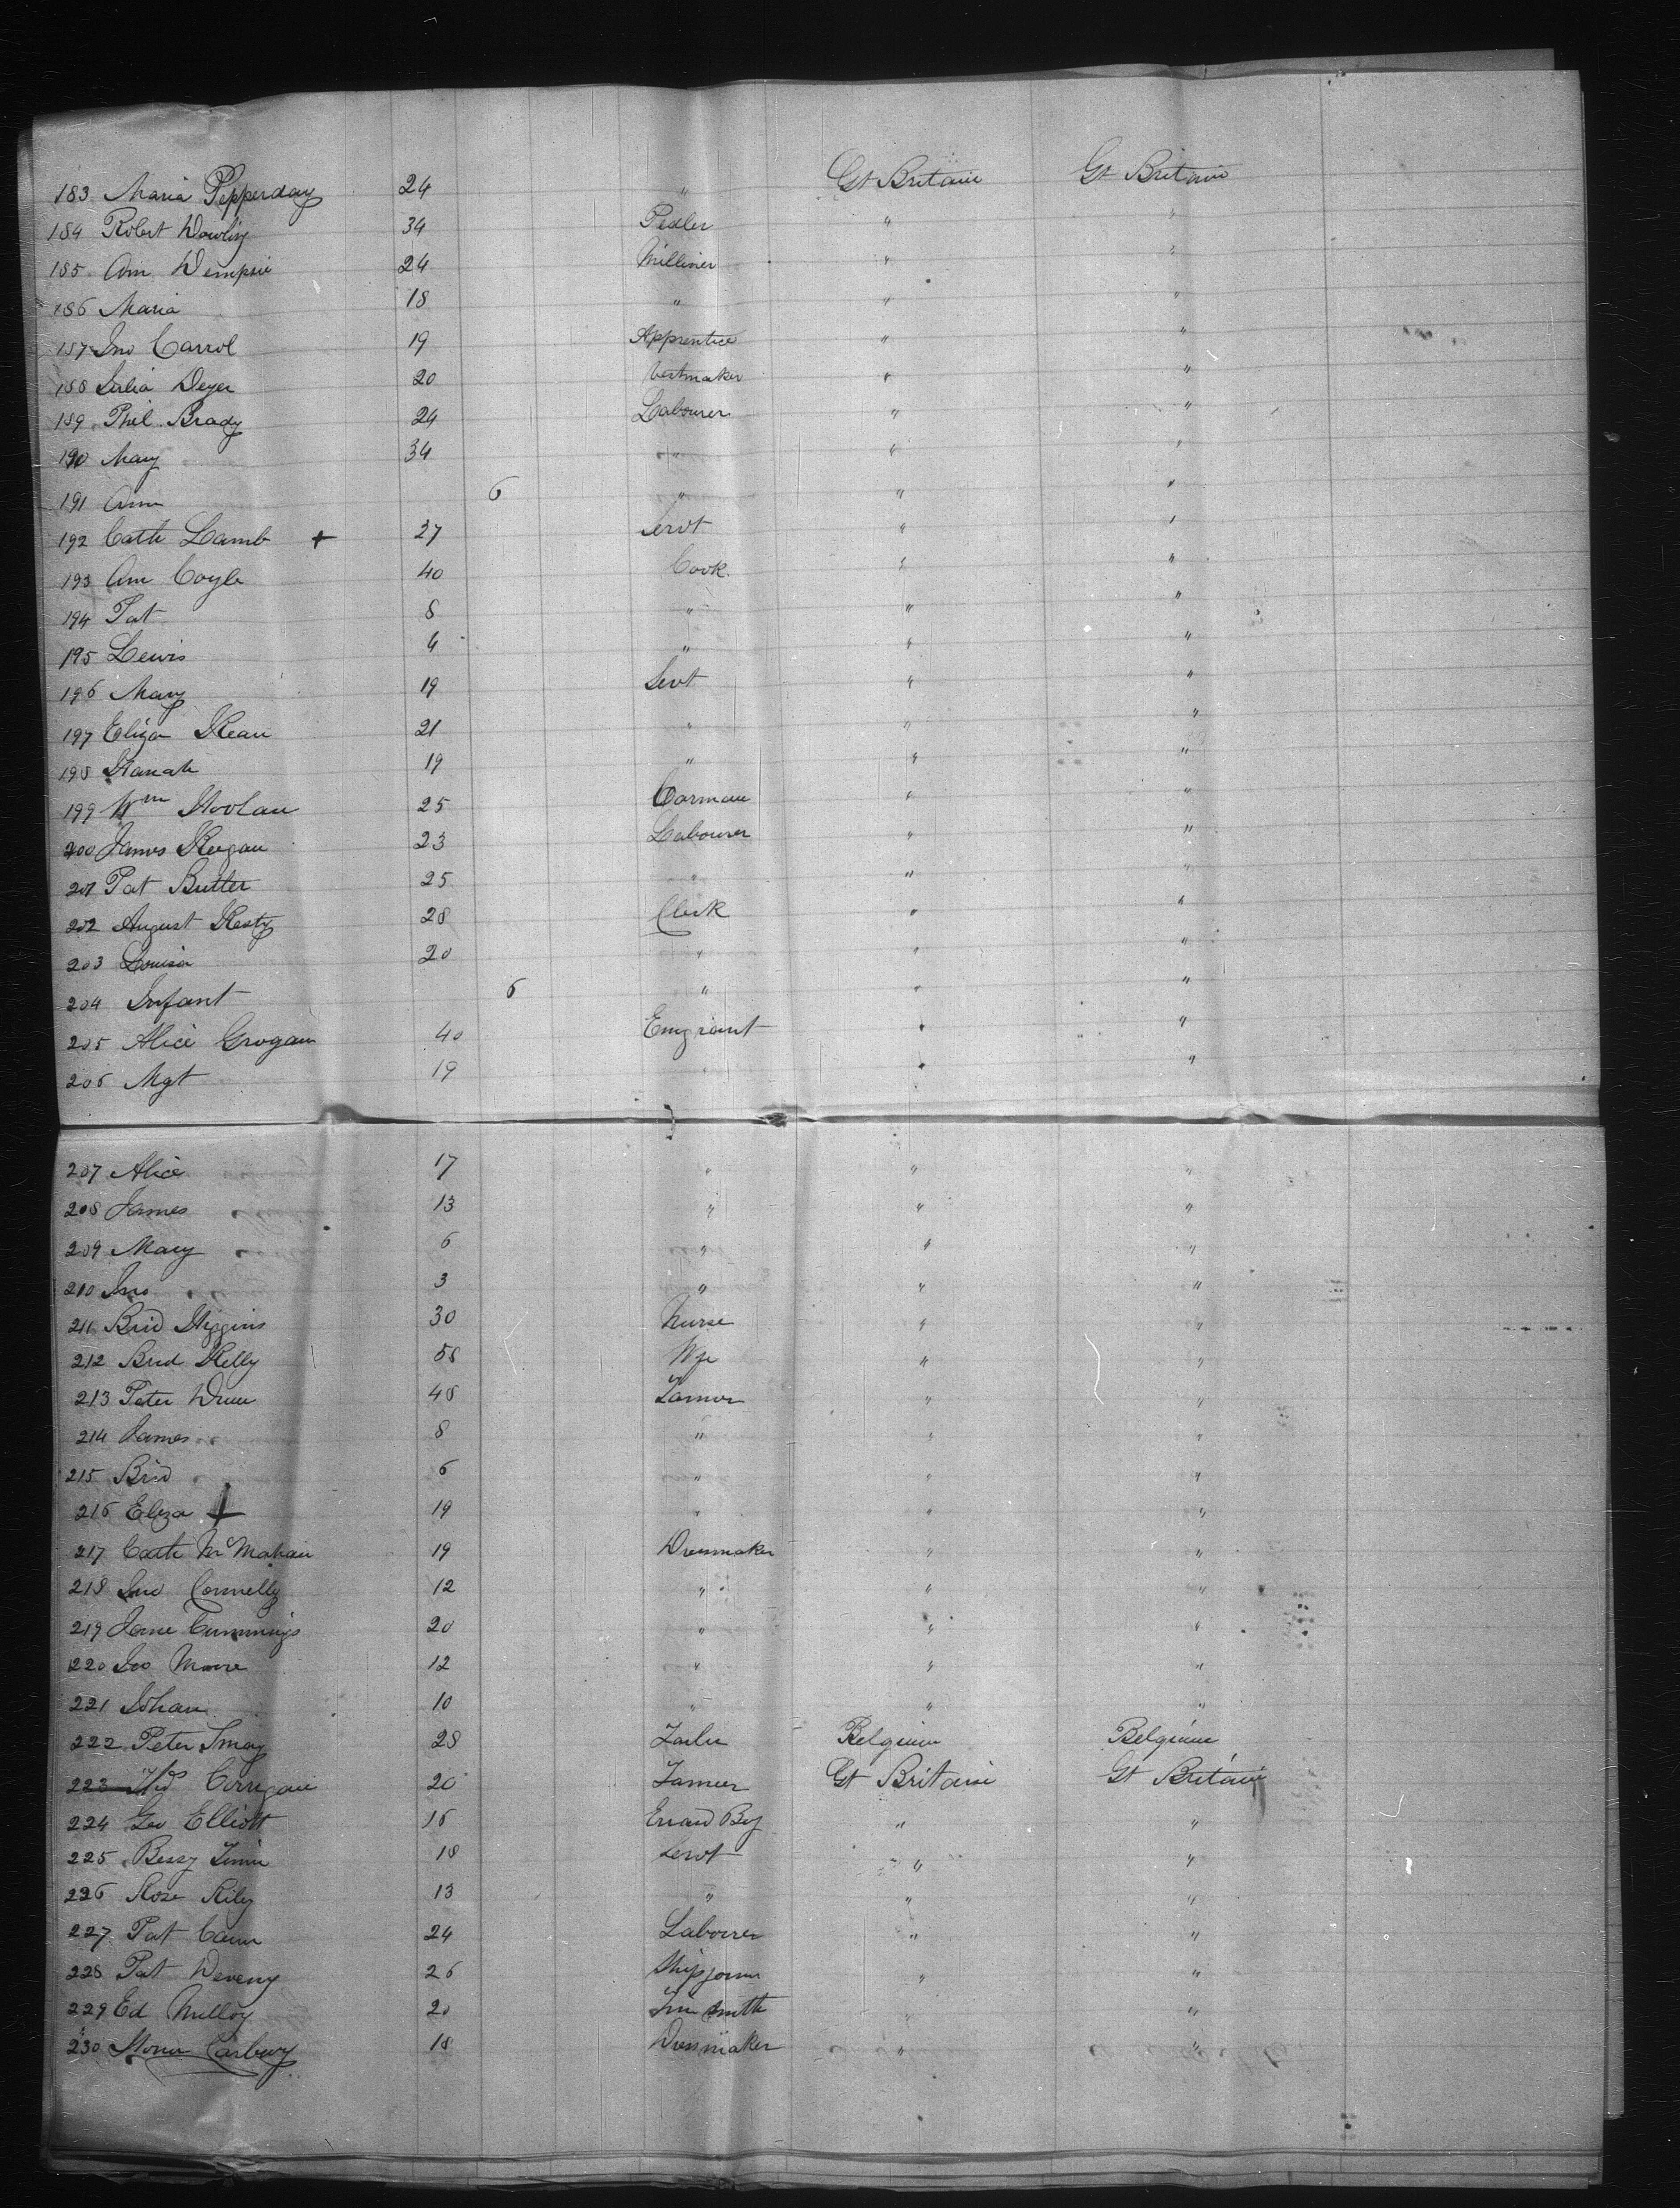 183 Maria Pepperday 24 " Gt Britain Gt Britain
184 Robert Dowling 34 Pedler " "
185 Ann Dempsie 24 Milliner " "
186 Maria 18 " " "
187 Jno Carrol 19 Apprentice " "
188 Julia Dwyer 20 Vestmaker " "
189 Phil Brady 24 Labourer " "
190 Mary 34 " " "
191 Ann 6 " " "
192 Cath Lamb + 27 Servt " "
193 Ann Coyle 40 Cook " "
194 Pat 8 " " "
195 Lewis 4 " " "
196 Mary 19 Servt " "
197 Eliza Kean 21 " " "
198 Hanah 19 " " "
199 Wm Hoolan 25 Carman " "
200 James Keegan 23 Labourer " "
201 Pat Butler 25 " " "
202 August Kesty 28 Clerk " "
203 Louisa 20 " " "
204 Infant 6 " " "
205 Alice Grogan 40 Emgrant " "
206 Mgt 19 " " "
207 Alice 17 " " "
208 James 13 " " "
209 Mary 6 " " "
210 Jno 3 " " "
211 Brid Higgins 30 Nurse " "
212 Brid Kelly 58 Wfe " "
213 Peter Drum 48 Farmer " "
214 James 8 " " "
215 Brid 6 " " "
216 Eliza + 19 " " "
217 Cath McMahan 19 Dressmaker " "
218 Jno Connelly 12 " " "
219 Jane Cummings 20 " " "
220 Jno Moore 12 " " "
221 Johan 10 " " "
222 Peter Smay 28 Belgium Belgium
223 Corrigan 20 Farmer Gt Britain Gt Britain
224 Geo Elliott 16 Errand Boy " "
225 Bessy 18 Servt " "
226 Rose Rily 13 " " "
227 Pat Cann 24 Labourer " "
228 Pat Deveny 26 " "
229 Ed Mulloy 20 Tin Smith " "
230 Honor Carbury 18 Dressmaker " "